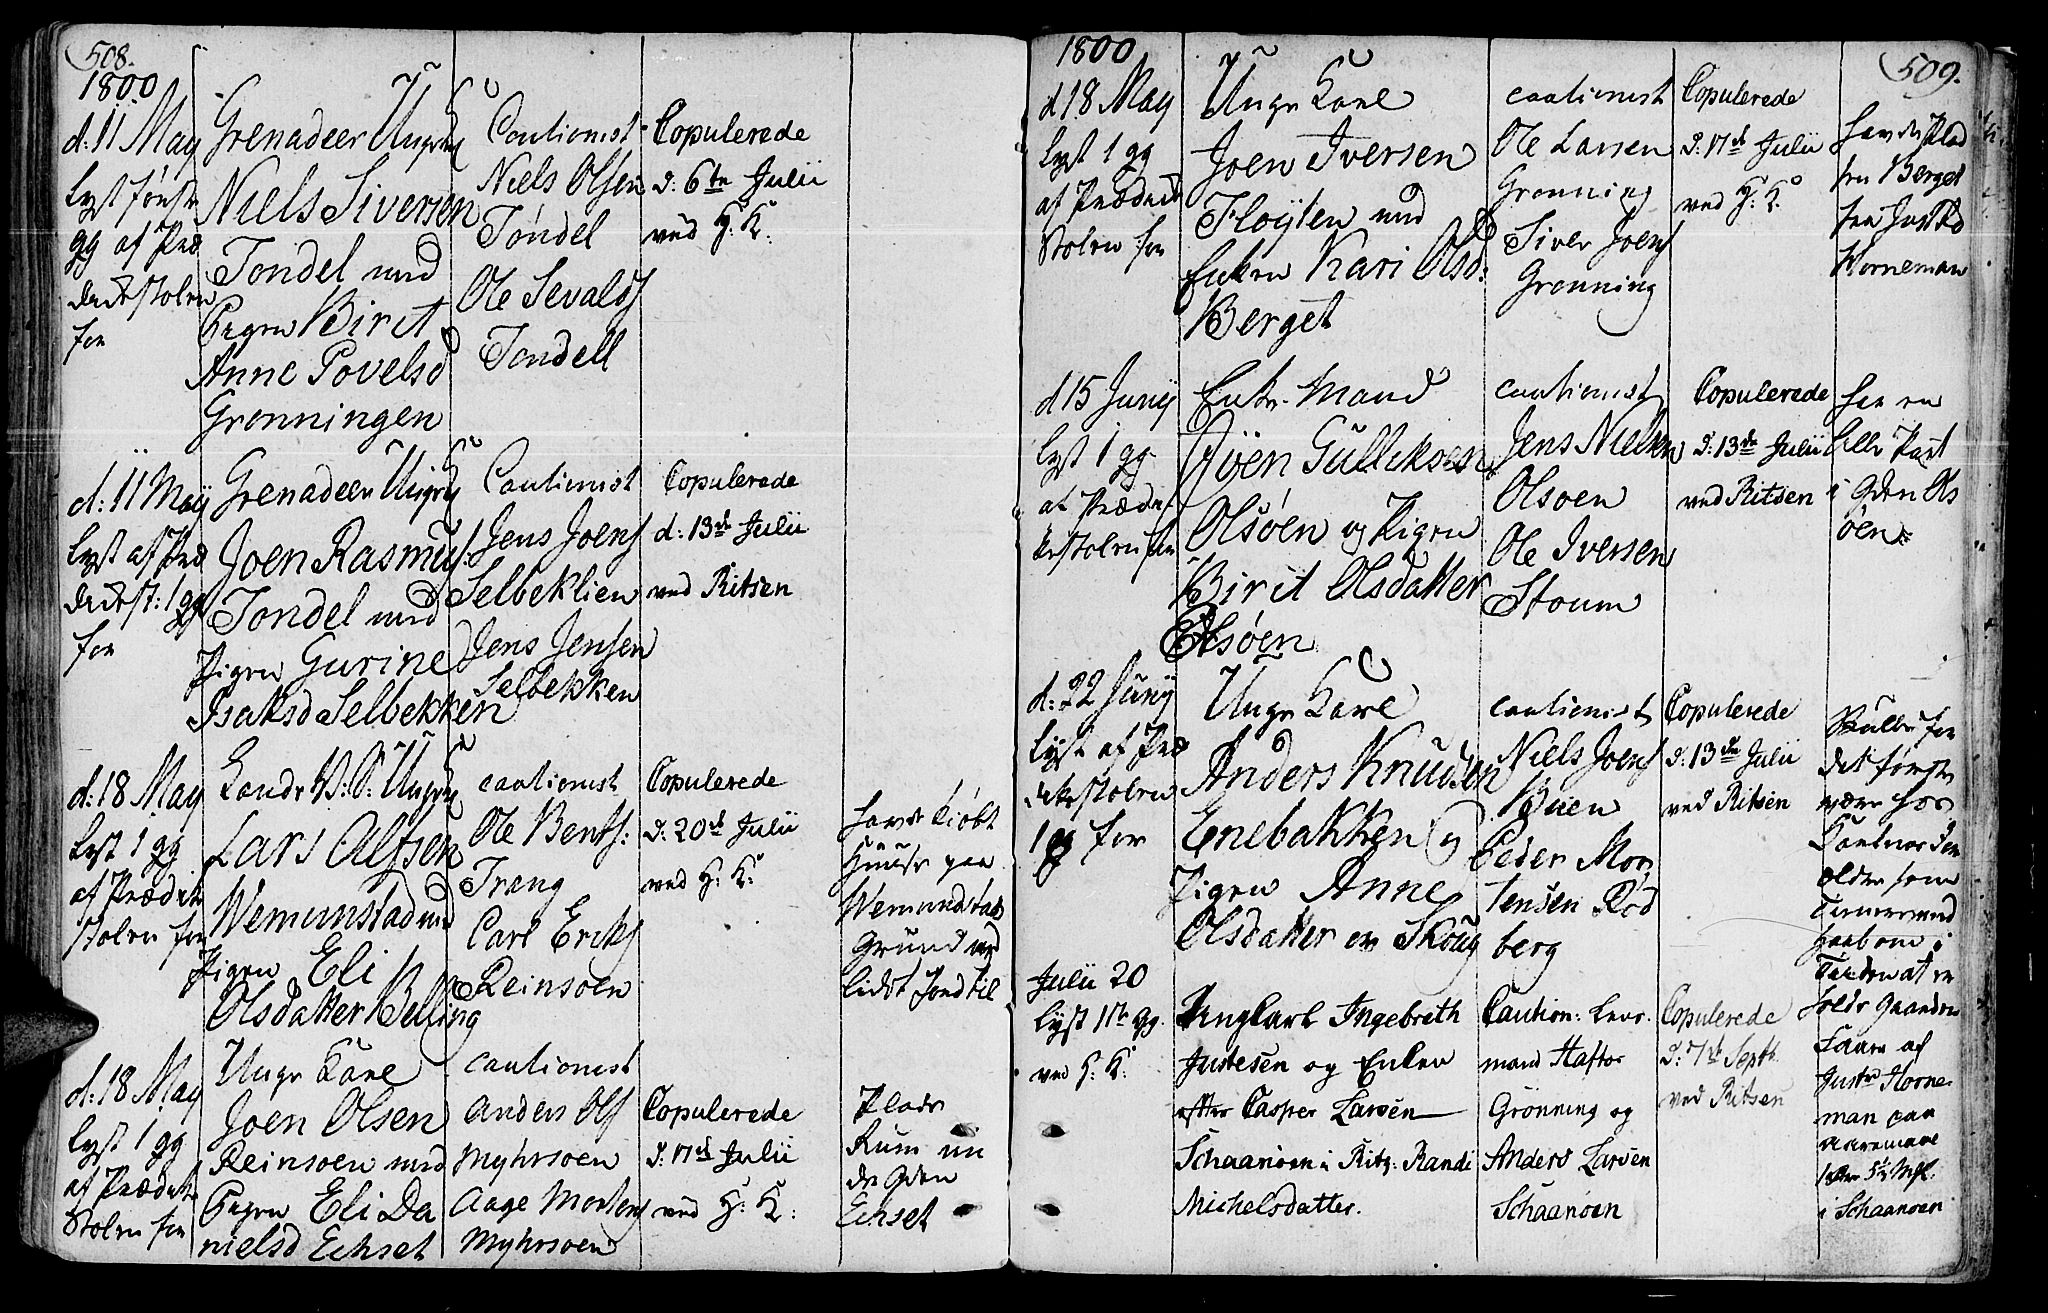 508.
1800
d: 11 May
lyst første
gg af Præ
dikestolen
for
Grenadeer Ungk:
Niels Siversen
Tondel med
Pigen Birit
Anne Povelsd
Grønningen
Cautionist
Niels Olsen
Tøndel
Ole Sevalds
Tondell
Copulerede
d: 6te Julii
ved H: K:
d: 11 May
lyst af Præ
dikest: 1 gg
for
Grenadeer Ungk
Joen Rasmus:
Tondel med
Pigen Gurine
Isaksd Selbekken
Cautionist
Jens Joens
Selbeklien
Jens Jensen
Selbekken
Copulerede
d: 13de Julii
ved Ritsen
d: 18 May
lyst 1 gg
af Prædike
stolen for
Lande V: S: Ungk
Lars Alfsen
Wemunstad med
Pigen Eli
Olsdatter Belling
cautionist
Ole Bents:
Trang
Carl Ericks
Reinsoen
Copulerede
d: 20de Julii
ved H: K:
have kiøbt
Huuse paa
Wemundstad
Grund med
lidet Jord til
d: 18 May
lyst 1 gg
af Prædike
Stolen for
Unge Karl
Joen Olsen
Reinsoen med
Pigen Eli Da
nielsd Echset
cautionist
Anders Ols
Myhrsoen
Aage Mortens
Myhrsoen
Copulerede
d: 17de Julii
ved H: K:
Plads
Rum un
der Gden
Echset
509.
1800
d 18 May
lyst 1 gg
af Prædike
Stolen for
Unge Karl
Joen Iversen
Fløyten med
Enken Kari Olsd:
Berget
cautionist
Ole Larsen
Grønning
Siver Joens
Gronning
Copulerede
d: 17de Julii
ved H: K:
har en Plad
fra Berget
fra Justed
Horneman
d 15 Junij
lyst 1 gg
af Prædi
kestolen for
Enke-Mand
Øven Gulleksen
Olsøen og Pigen
Birit Olsdatter
Olsøen
cautionist
Jens Nielsen
Olsoen
Ole Iversen
Stoum
Copulerede
d: 13de Julii
ved Ritsen
har en
lille Part
i Gden Ols
øen
d: 22 Junij
lyst af Præ
dikestolen
1 gg for
Unge Karl
Anders Knudsen
Enebakken og
Pigen Anne
Olsdatter en Skoug
cautionist
Niels Joens
Buen
Peder Mor
tensen Rød
berg
Copulerede
d: 13de Julii
ved Ritsen
Skulle for
det første
være hos
Karlens For
ældre som
Tienersmed
haab om i
Tiden at en
holde Gaarden
Julii 20
lyst 1te gg.
ved H: K:
Ungkarl Ingebreth
Justesen og Enken
efter Casper Larsen
Schaanøen i Rits: Randi
Michelsdatter.
Caution: Lens-
mand Haftor
Grønning og
Anders Larsen
Schaanøen
Copulerede
d: 7de Septbr.
ved Ritsen
Faare af
Juster Horne
man paa
1 Øre 5½ Mkl.
i Schaanøen